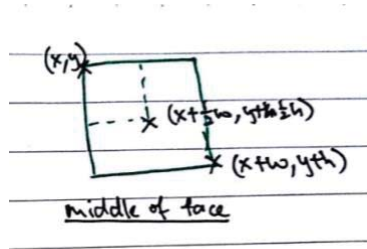 (x,y)
(x+½w, y+½h)
(x+w, y+h)
middle of face